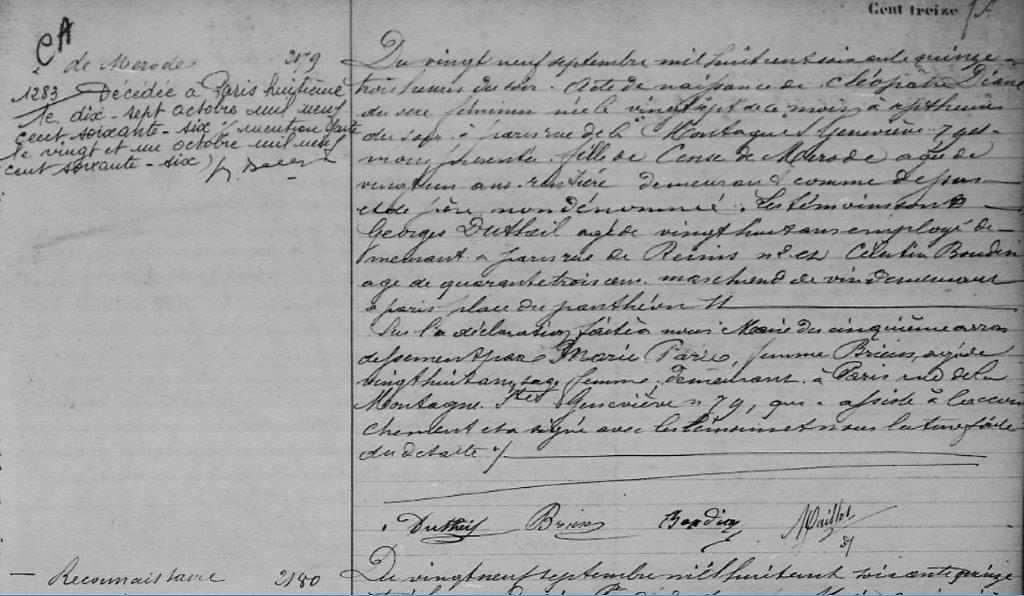 Cent treize
de Merode 2179
1283 Décédée à Paris huitième
le dix-sept octobre mil neuf
cent soixante-six / mention faite
le vingt et un octobre mil neuf
cent soixante-six
Du vingt neuf septembre mil huit cent soixante quinze
trois heures du soir. Acte de naissance de Cléopâtre Diane
du sexe féminin née le vingt sept de ce mois à sept heures
du soir à paris rue de la Montagne Ste Geneviève 79
non présentée. fille de de Merode agée de
vingt un ans rentière demeurant comme dessus
et de père non dénommé. Les témoins sont
Georges Dutheil agé de vingt huit ans employé de-
meurant à paris rue de Reims n° Célestin Boudin
age de quarante trois ans marchand de vin demeurant
à paris place du panthéon 11
Sur la déclaration faite à nous Maire du cinquième arron
dissement par Marie Paris, femme Briens, agée de
vingt huit ans, sage femme, demeurant à Paris rue de la
Montagne Ste Geneviève n 79, qui a assisté à l'accou
chement et a signé avec les témoins et nous lecture faite
du
Dutheil Briens Boudin
Reconnaissance 2180
Du vingt neuf septembre mil huit cent soixante quinze